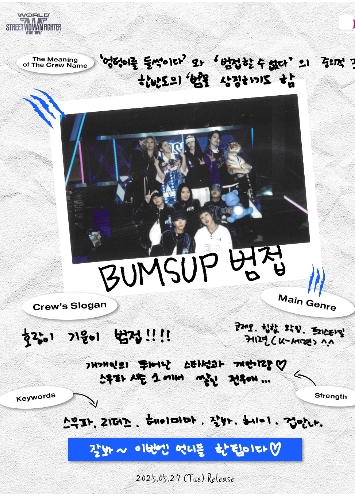 WORLD
OF
STREET WOMAN FIGHTER
The Meaning
of The Crew Name
'엉덩이를 들썩이다' 와 '범접할 수 없다' 의 중의적
한반도의 '범'을 상징하기도 함
BUMSUP 범접
Crew's Slogan
호랑이 기운이 범접!!!!
Main Genre
코레오, 힙합, 왁킹, 프리스타일
케팝(K-세팝) ^^
개개인의 뛰어난 스타성과 개인기량♡
스우파 시즌 1 에서 쌓인 전우애...
Keywords
Strength
스우파, 리더즈, 헤이마마, 잘봐, 헤이, 겁만나.
잘봐~ 이번엔 언니들 한팀이다♡
2025.05.27 (Tue) Release